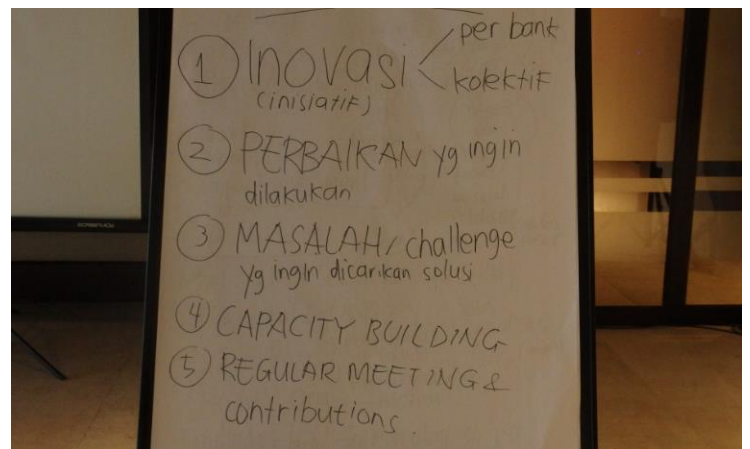 per bank
1 INOVASI
(inisiatif)
kolektif
2 PERBAIKAN yg ingin
dilakukan
3 MASALAH/challenge
yg ingin dicarikan solusi
4 CAPACITY BUILDING
5 REGULAR MEETING &
contributions.